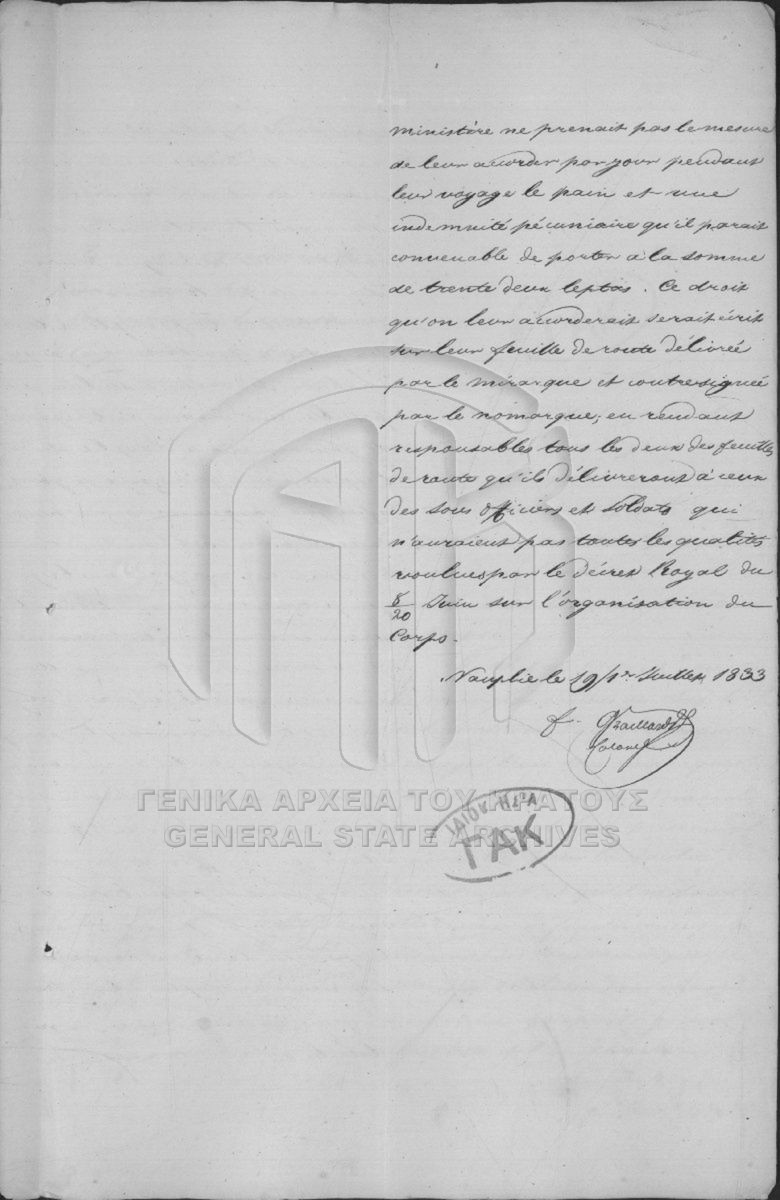 ministère ne prenait pas le mesure
de leur accorder par jour pendant
leur voyage le pain et une
indemnité pécuniaire qu'il parait
convenable de porter à la somme
de trente deux leptas. Ce droit
qu'on leur accorderait serait écrit
sur leur feuille de route délivrée
par le mirarque et contresignée
par le nomarque; en rendant
responsables tous les deux des feuilles
de route qu'ils délivreront à ceux
des sous officiers et soldats qui
n'auraient pas toutes les qualités
voulues par le Décret Royal du
8/20 Juin sur l'organisation du
Corps.
Nauplie le 19/1er Juillet 1833
f. Graillard
Colonel
ΓΕΝΙΚΑ ΑΡΧΕΙΑ ΤΟΥ ΚΡΑΤΟΥΣ
GENERAL STATE ARCHIVES
ΓΑΚ